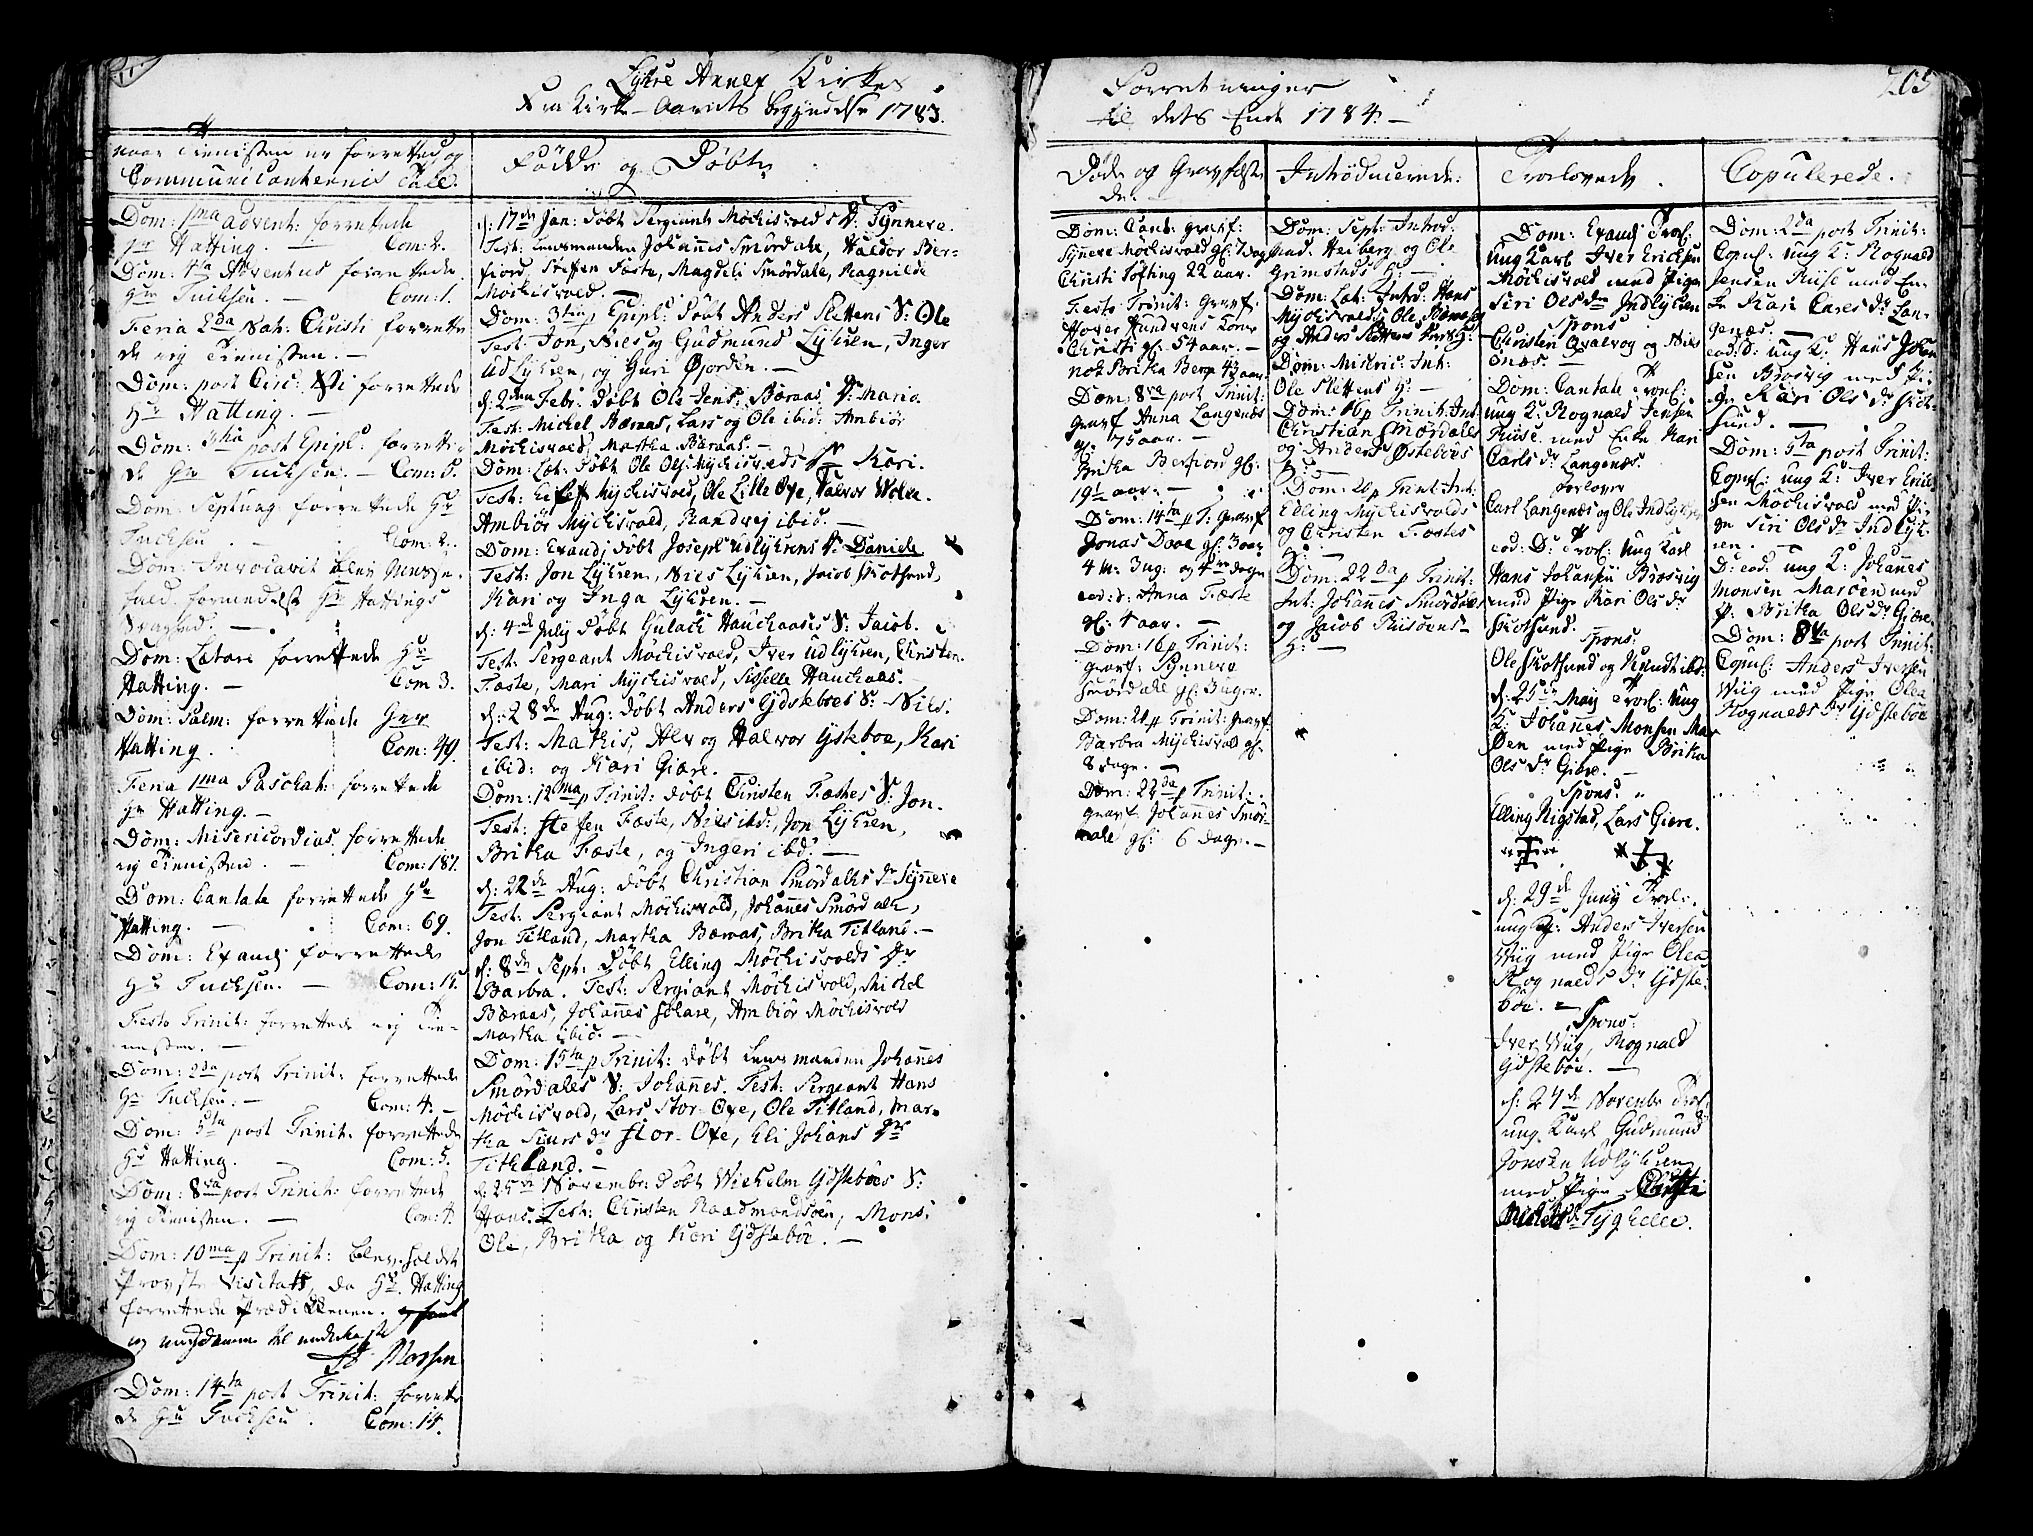 Lykre Annex Kirkes
Fra Kirke-Aarets begyndelse 1783.
Naar Tienisten er forrettes og
Communicanternes Tall.
Dom: 1ma Advent: forrettede
Hr Hatting. — Com: 2.
Dom: 4ta Adventus forrettede
Hr Tuchsen. — Com: 1.
Feria 2da Nat: Christi forrette
de jeg Tienisten. —
Dom: post Circ: Xsti forrettede
Hr Hatting. —
Dom: 3tia post Epiph: forrette-
de Hr Tuchsen. — Com: 5.
Dom: Septuag: forrettede Hr
Tuchsen. — Com: 2.
Dom: Invocavit blev Messe-
fald formedelst Hr Hattings
Svaghed. —
Dom: Lætare forrettede Hr
Hatting. — Com 3.
Dom: Palm: forrettede Herr
Hatting. Com: 49.
Feria 1ma Paschat: forrettede
Hr Hatting. —
Dom: Misericordias forrettede
jeg Tienisten. — Com: 181.
Dom: Cantate forrettede Hr
Hatting. — Com: 69.
Dom: Exaudj forrettede
Hr Tuchsen. — Com: 15.
Festo Trinit: forrettede jeg Tie-
nesten. —
Dom: 2da post Trinit: forrettede
Hr Tuchsen. — Com: 4. —
Dom: 5ta post Trinit: forrettede
Hr Hatting. — Com: 5.
Dom: 8va post Trinit: forrettede
jeg Tienisten. — Com: 7.
Dom: 10ma p Trinit: blev holdet
Provste Visitatz, da Hr Hatting
forrettede Prædikkenen.
og ungdommen
Dom: 14ta post Trinit: forrette
de Hr Tuchsen. Com: 14.
Fødde og Døbte
d: 17de Jan: døbt Sergiant Møchisvolds Dr: Synneve.
Test: Lensmanden Johannis Smördale, Haldor Ber-
fiord, Steffen Fæste, Magdeli Smördale, Ragnilde
Møchisvold. —
Dom: 3tia p Epiph: døbt Anders Slettens S: Ole
Test: Jon, Nies og Gudmund Lykren, Inger
Udlykren, og Guri Øjorden. —
d: 2den Febr: døbt Ole Jens: Bæraas Dr: Maria.
Test: Michel Bæraas, Lars og Ole ibid: Ambiör
Møchisvold, Martha Bæraas. —
Dom: Læt: døbt Ole Ols: Mychisvolds Dr Kari.
Test: Mychisvold, Ole Lille Oxe, Halvor Wolle.
Ambiör Mychisvold, Randvej ibid. —
Dom: Exaudj døbt Joseph Udlykrens Dr: Daniele
Test: Jon Lykren, Nies Lykren, Jacob Skotsund,
Kari og Inga Lykren. —
d: 4de July døbt Gulach Hauchaases S: Jacob.
Test: Sergeant Møchisvold, Iver Udlykren, Christen
Fæste, Mari Mychisvold, Sisselle Hauchaas. —
d: 28de Aug: døbt Anders Ydsteböes S: Nils.
Test: Mathis, Alv og Halvor Ysteboe, Kari
ibid: og Kari Giære. —
Dom: 12ma p Trinit: døbt Christen Fæstes S: Jon.
Test: Steffen Fæste, Nils ibd:, Jon Lykren,
Britha Fæste, og Ingeri ibd: —
d: 22de Aug: døbt Christian Smördales Dr Synneve
Test: Sergiant Møchisvold, Johannes Smördale,
Jon Titland, Martha Bæraas, Britha Titland. —
d: 8de Sept: døbt Elling Møchisvolds Dr
Barbra. Test: Sergiant Møchisvold, Michel
Bæraas, Johannes Schare, Ambiör Møchisvold
Martha ibid. —
Dom: 15ta p Trinit: døbt Lensmanden Johannes
Smördales S: Johannes. Test: Sergeant Hans
Møchisvold, Lars Stor-Oxe, Ole Titland, Mar-
tha Siurs dr Stor-Oxe, Eli Johans dr
Titland. —
d: 25de Novembr: døbt Wilhelm Ydsteböes S:
Hans. Test: Christen Raadmandsöen, Mons,
Ole, Britha og Kari Ydsteböe. —
Forretninger
til dets Ende 1784. —
205
Døde og Gravfæste
de.
Dom: Cant: gravf:
Synneve Møchisvold gl: 7 dag
Christi Sætting 22 aar.
Festo Trinit: Gravf:
Christi gl: 54 aar. —
not Britha Berge 43 aar.
Dom: 8va post Trinit:
gravf Anna Langenæs
gl: 75 aar. —
Britha Berfiord gl:
19½ aar. —
Dom: 14ta p T: Gravf
Jonas Daae gl: 3 aar
4 M: 3 ug: og 4re dage
eod: d: Anna Fæste
gl: 4 aar. —
Dom: 16 p Trinit:
gravf: Synneve
Smördale gl: 3 uger.
Dom: 21 p Trinit: Gravf:
Barbra Mychisvold gl:
8 dage. —
Dom: 22da p Trinit:
gravf: Johannes Smör-
dale gl: 6 dage. —
Introducerede:
Dom: Sept: Introd:
Mad: Heiberg og Ole
Grimstads H: —
Dom: Læt: Introd: Hans
Mychisvolds, Ole Bæraas
og Anders Slettens
Dom: Miseric: Int:
Ole Slettens H: —
Dom: 16 p Trinit: Int:
Christian Smordales
og Anders Østeböes
H: —
Dom: 20 p Trinit Int:
Edling Mychisvolds
og Christen Fæstes
H: —
Dom: 22da p Trinit:
Int: Johannes Smördales
og Jacob Riisöens
H: —
Trolovede.
Dom: Exaudj Trol:
Ung Karl Iver Erichsen
Møchisvold med Pige
Siri Ols dr Indlykren
Spons:
Christen Qvalvog og Nils
önæs. —
Dom: Cantate Trol:
Ung K: Rognald Jensen
Riise med Enke Kari
Carls dr Langenæs.
Forlover
Carl Langenæs og Ole Indlykren
eod: D: Trol: Ung Karl
Hans Johansen Brosvig
med Pige Kari Ols dr
Skotsund.
Spons:
Ole Skotsund og Knudt ibd:
d: 25de May Trol: Ung
K: Johannes Monsen Mar
öen med Pige Britha
Ols dr Giære. —
Spons:
Elling Rigstad, Lars Giære.
d: 29de Juny Trol:
ung K: Anders Iversen
Wiig med Pige Olea
Rognalds dr Ydste-
böe. —
Spons:
Iver Wiig, Rognald
Ydsteböe. —
d: 27de Novembr Trol:
ung Karl Gudmund
Jonsen Udlykren
med Pige Christi
Michels dr Tyghelle.
Copulerede.
Dom: 2da post Trinit:
Copul: ung K: Rognald
Jensen Riise med En-
ke Kari Carls dr Lan-
genæs. —
eod: D: ung K: Hans Johan
sen Brosvig med Pi-
ge Kari Ols dr Skot-
sund. —
Dom: 5ta post Trinit:
Copul: ung K: Iver Erich
sen Møchisvold med Pi-
ge Siri Ols dr Indlyk-
ren. —
D: eod: ung K: Johannes
Monsen Maröen med
P: Britha Ols dr Giære.
Dom: 8va post Trinit:
Copul: Anders Iversen
Wiig med Pige Olea
Rognalds dr Ydsteböe